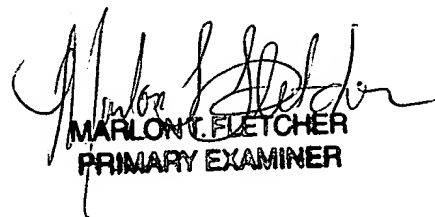 Marlon T Fletcher
MARLON T. FLETCHER
PRIMARY EXAMINER